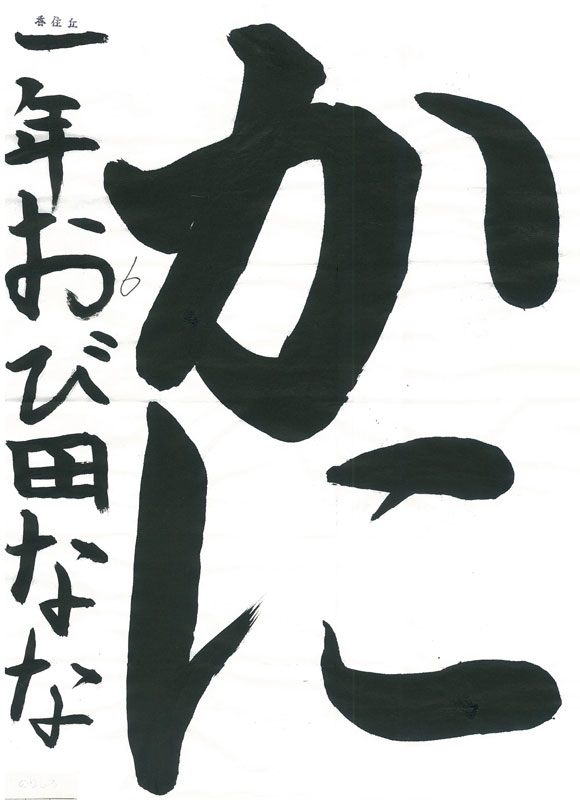 かに
香住丘
一年おび田なな
6